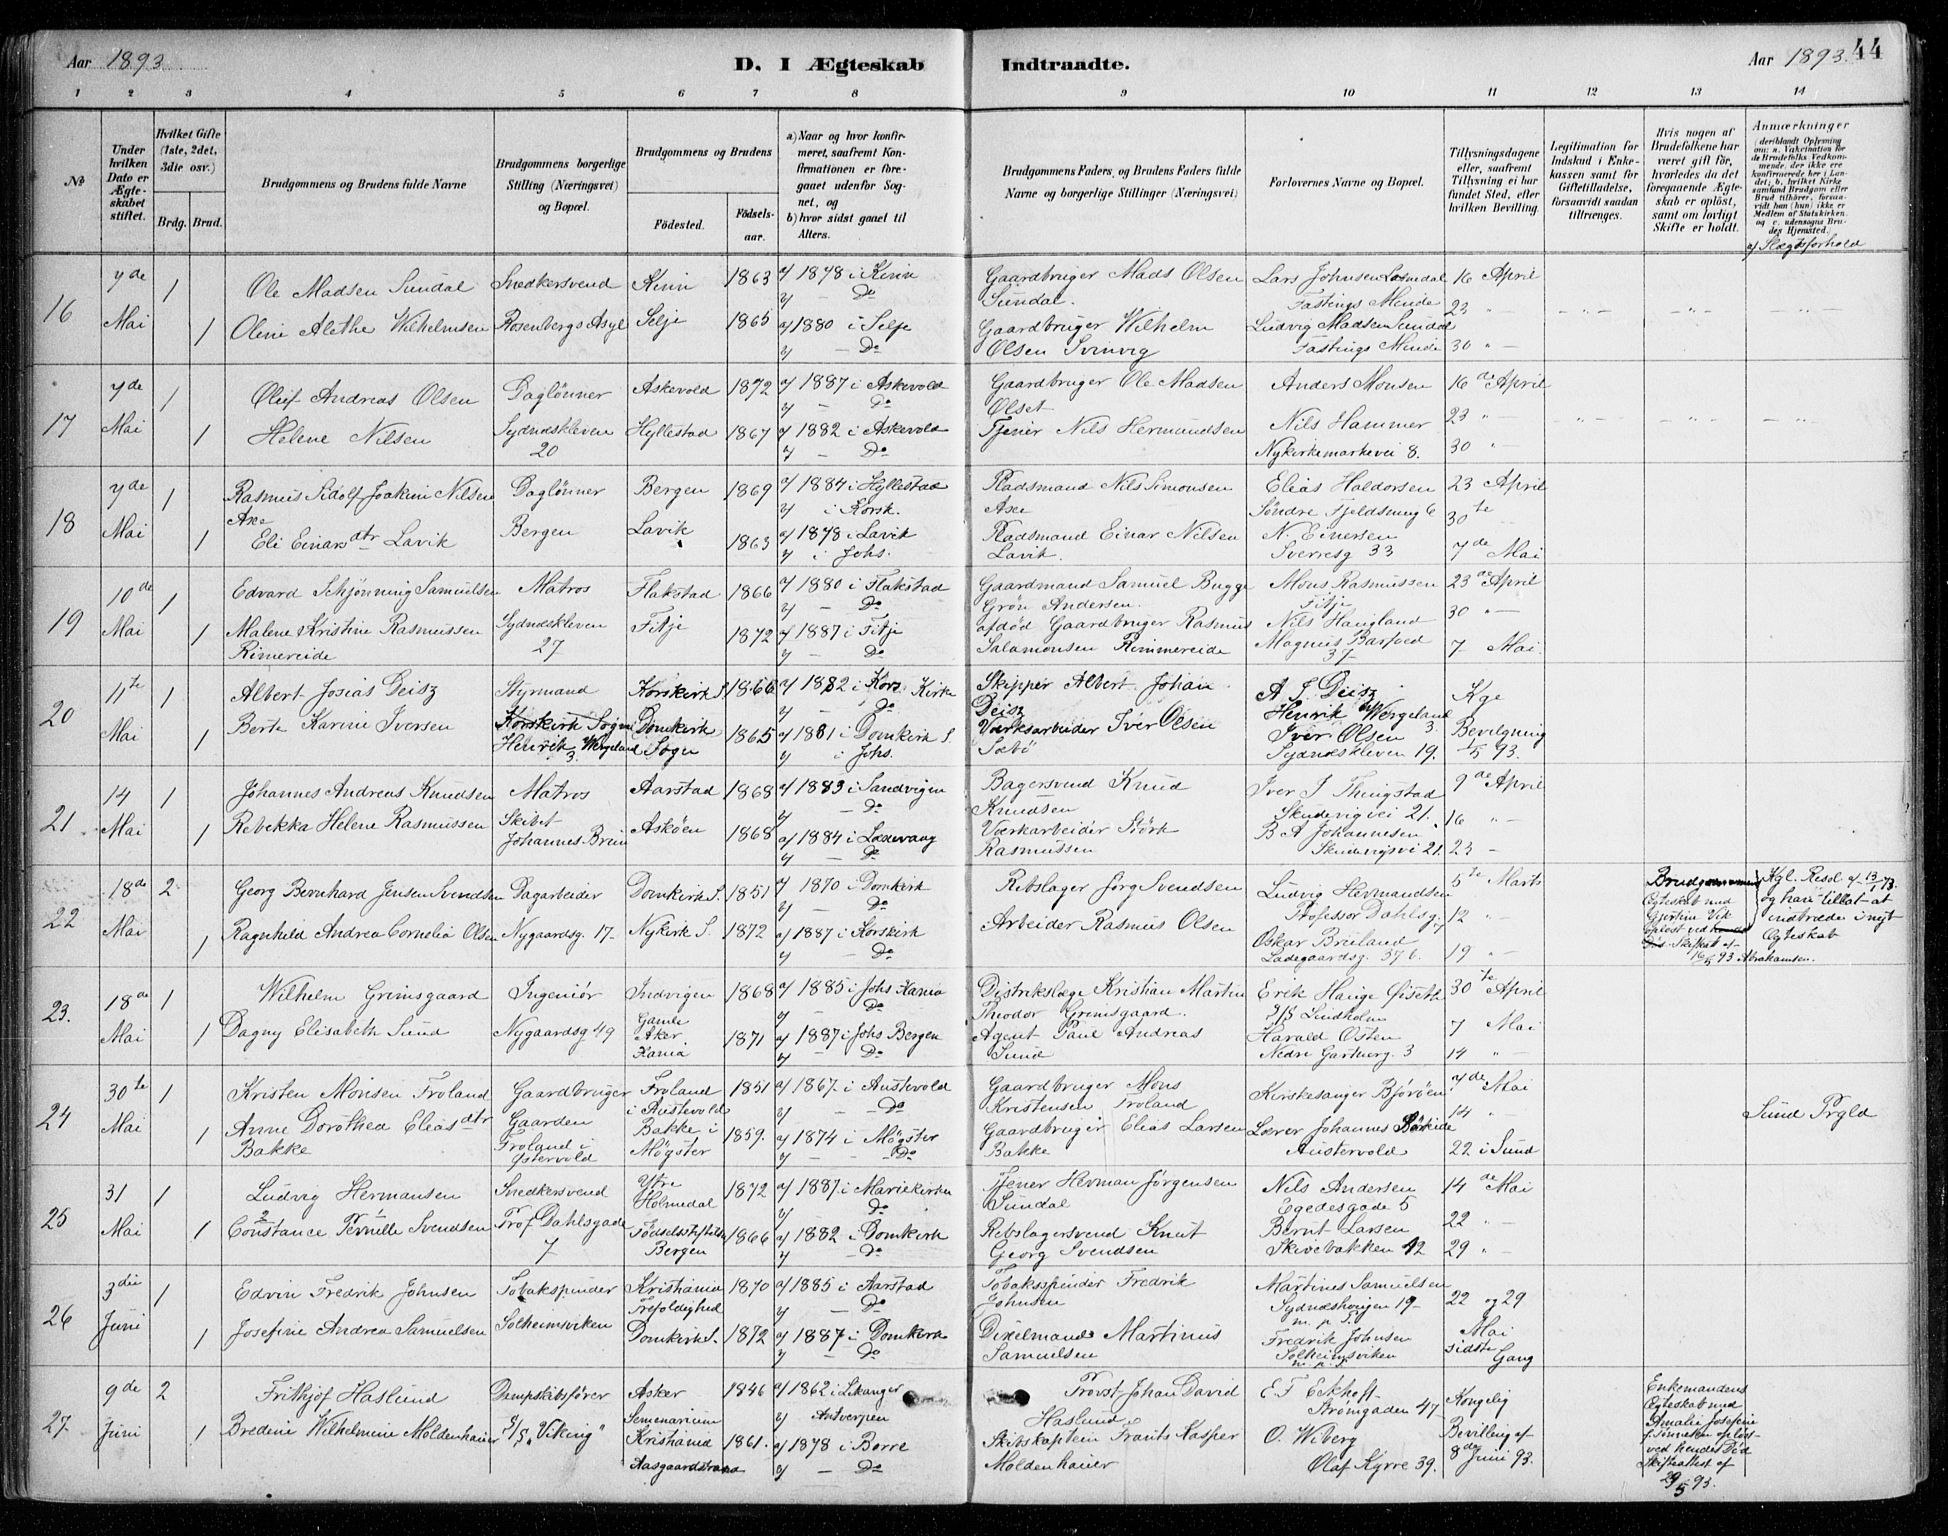 Aar 1893
D. I Ægteskab Indtraadte.
Aar 1893. 44
1 2 3 4 5 6 7 8 9 10 11 12 13 14
No
Under hvilken Dato er Ægteskabet stiftet.
Hvilket Gifte (1ste, 2det, 3die osv.)
Brdg. Brud.
Brudgommens og Brudens fulde Navne
Brudgommens borgerlige Stilling (Næringsvei) og Bopæl.
Brudgommens og Brudens
Fødested. Fødselsaar.
a) Naar og hvor konfirmeret, saafremt Konfirmationen er foregaaet udenfor Sognet, og
b) hvor sidst gaaet til Alters.
Brudgommens Faders, og Brudens Faders fulde Navne og borgerlige Stillinger (Næringsvei)
Forlovernes Navne og Bopæl.
Tillysningsdagene eller, saafremt Tillysning ei har fundet Sted, efter hvilken Bevilling.
Legitimation for Indskud i Enkekassen samt for Giftetilladelse, forsaavidt saadan tiltrænges.
Hvis nogen af Brudefolkene har været gift før, hvorledes da det foregaaende Ægteskab er opløst, samt om lovligt Skifte er holdt.
Anmærkninger
(deriblandt Oplysning om: a. Vakcination for de Brudefolks Vedkommende, der ikke ere konfirmerede her i Landet; b. hvilket Kirkesamfund Brudgom eller Brud tilhører, forsaavidt han (hun) ikke er Medlem af Statskirken, og c. udensogns Brudes Hjemsted.)
d/ Slægtsforhold
16 7de Mai 1 Ole Madsen Sundal Snedkersvend Kinn 1863 a/ 1878 i Kinn b/ — Do Gaardbruger Mads Olsen Sundal. Lars Johnsen Løsndal Fastings Minde 16 April 23 " —
1 Oline Alethe Wilhelmsen Rosenbergs Asyl Selje 1865 a/ 1880 i Selje b/ — Do Gaardbruger Wilhelm Olsen Svinvig Ludvig Madsen Sundal Fastings Minde 30 " —
17 7de Mai 1 Oluf Andreas Olsen Daglønner Askevold 1872 a/ 1887 i Askevold b/ — Do Gaardbruger Ole Madsen Olset Anders Monsen 16de April 23 " —
1 Helene Nilsen Sydnæskleven 20 Hyllestad 1867 a/ 1882 i Askevold b/ — Do Tjener Nils Hermandsen Nils Hammer Nykirkemarkevei 8. 30 " —
18 7de Mai 1 Rasmus Sidolf Joakim Nilsen Axe Daglønner Bergen 1869 a/ 1884 i Hyllestad b/ i Korsk. Pladsmand Nils Simonsen Axe Elias Haldorsen Søndre Fjeldsmug 6 23 April 30te
1 Eli Einarsdtr Lavik Bergen Lavik 1863 a/ 1878 i Lavik b/ i Johs. Pladsmand Einar Nilsen Lavik. N. Einersen Sverresg 33 7de Mai
19 10de Mai 1 Edvard Schjønning Samuelsen Matros Flakstad 1866 a/ 1880 i Flakstad b/ — Do Gaardmand Samuel Bugge Grøn Andersen. Mons Rasmussen Fitje 23de April 30 " —
1 Malene Kristine Rasmussen Rimereide Sydnæskleven 27 Fitje 1872 a/ 1887 i Fitje b/ — Do afdød Gaardbruger Rasmus Salamonsen Rimmereide Nils Haugland Magnus Barfod 37 7 Mai.
20 11te Mai 1 Albert Josias Deisz Styrmand Korskirk S. 1866 a/ 1882 i Kors Kirke b/ — Do Skipper Albert Johan Deisz A. J. Deisz Henrik Wergeland 3. Kge Bevilgning 1/5 93.
1 Berte Karine Iversen Korskirk Sogn Henrik Wergeland 3 Domkirk Sogn 1865 a/ 1881 i Domkirk S. b/ i Johs. Værksarbeider Iver Olsen Sæbø Iver Olsen Sydnæskleven 19.
21 14 Mai 1 Johannes Andreas Knudsen Matros Aarstad 1868 a/ 1883 i Sandvigen b/ — Do Bagersvend Knud Knudsen Iver J. Thingstad Skudevigvei 21. 9de April 16 " —
1 Rebekka Helene Rasmussen Skibet Johannes Brun Askøen 1868 a/ 1884 i Ladevaag b/ — Do Værkarbeider Størk Rasmussen B A Johannesen Skudevigsvei 21. 23 —
22 18de Mai 2 Georg Bernhard Jensen Svendsen Dagarbeider Domkirk S. 1851 a/ 1870 i Domkirk b/ — Do Rebslager Jørg Svendsen Ludvig Hermandsen Professor Dahlsg. 7 5te Marts 12 " —
Brudgommens Egteskab med Gjertine Vik opløst ved Skiftesb. af 16/5 93 Abrahamsen.
Kgl. Resol af 13/1 93. og han tillat at indtræde i nyt Egteskab
1 Ragnhild Andrea Cornelia Olsen Nygaardsg. 17 Nykirk S. 1872 a/ 1887 i Korskirk b/ — Do Arbeider Rasmus Olsen Oskar Breiland Ladegaardsg. 37 b. 19 " —
23. 18de Mai 1 Wilhelm Grimsgaard Ingeniør Indvigen 1868 a/ 1885 i Johs Xania b/ — Do Distrikslæge Kristian Martin Theodor Grimsgaard. Erik Hauge Øiseth S/S Lindholm 30te April 7 Mai
1 Dagny Elisabeth Sund Nygaardsg 49 Gamle Aker Xania 1871 a/ 1887 i Johs Bergen b/ — Do Agent Paul Andreas Sund Harald Osten Nedre Gartnerg. 3 14 " —
24 30te Mai 1 Kristen Monsen Froland Gaardbruger Gaarden Froland i Østervold Froland i Austevold 1851 a/ 1867 i Austevold b/ — Do Gaardbruger Mons Kristensen Froland Kirkesanger Bjørøen 7de Mai 14 " —
Sund Prgld
1 Anne Dorothea Eliasdtr Bakke Bakke i Møgster 1859. a/ 1874 i Møgster b/ — Do Gaardbruger Elias Larsen Bakke Lærer Johannes Austervold 22 i Sund
25 31 Mai 1 Ludvig Hermansen Snedkersvend Ytre Holmedal 1872 a/ 1887 i Mariekirken b/ — Do Tjener Herman Jørgensen Sundal Nils Andersen Egedesgade 5 14de Mai 22 " —
1 Constance Pernille Svendsen Prof Dahlsgade 7 Fødselsstiftelsen Bergen 1866 a/ 1882 i Domkirk b/ — Do Rebslagersvend Knut Georg Svendsen Bernt Larsen Skivebakken 12 29 " —
26 3die Juni 1 Edvin Fredrik Johnsen Tobakspinder Kristiania Trefoldighed 1870 a/ 1885 i Aarstad b/ — Do Tobaksspinder Fredrik Johnsen Martines Samuelsen Sydnæshaugen 19 m. p. P. 22 og 29 Mai sidste Gang
1 Josefine Andrea Samuelsen Solheimsviken Domkirk S. 1872 a/ 1887 i Domkirk b/ — Do Dixelmand Martinus Samuelsen Fredrik Johnsen Solheimsviken m. p. P.
27. 9de Juni 2 Frithjof Haslund Dampskibsfører S/S "Viking" Asker Semenarium 1846 a/ 1862 i Lekanger b/ Antverpen Provst Johan David Haslund E. F. Eckhoff Strømgaden 47. Kongelig Bevilling af 8de Juni 93.
Enkemandens Egteskab med Amalie Josefine f. Tønnesen opløst ved hendes Død Skifteattest af 29/5 93.
1 Bredine Wilhelmine Moldenhauer Kristiania Aasgaardstrand 1861. a/ 1878 i Borre b/ — Do Skibskaptein Frants Kasper Moldenhauer O. Wiberg Olaf Kyrre 39.